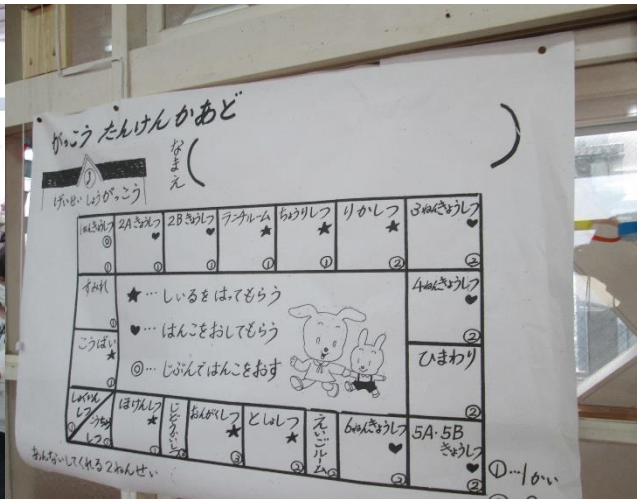 がっこう たんけん かあど
なまえ ( )
①
げいせいしょうがっこう
1ねんきょうしつ ◎ ①
2Aきょうしつ ♥ ①
2Bきょうしつ ♥ ①
ランチルーム ★ ①
ちょうりしつ ★ ①
りかしつ ★ ②
3ねんきょうしつ ♥ ②
すみれ ①
4ねんきょうしつ ♥ ②
★…しいるを はってもらう
♥…はんこをおしてもらう
◎…じぶんではんこをおす
こうばい ★ ①
ひまわり ②
しょくいんしつ ①
こうちょうしつ ①
ほけんしつ ★ ①
おんがくしつ ★ ③
としょしつ ★ ②
えいごルーム ②
6ねんきょうしつ ♥ ②
5A・5B
きょうしつ ♥ ②
①…1かい
あんないしてくれる2ねんせい